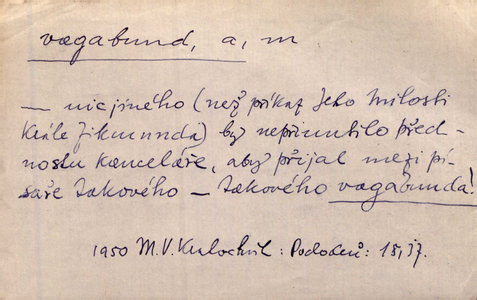 vagabund, a, m
— nic jiného (než příkaz Jeho Milosti
krále Zikmunda) by nepřinutilo před-
nostu kanceláře, aby přijal mezi pí-
saře takového — takového vagabunda!
1950 M.V. Kratochvíl: : 15, 37.